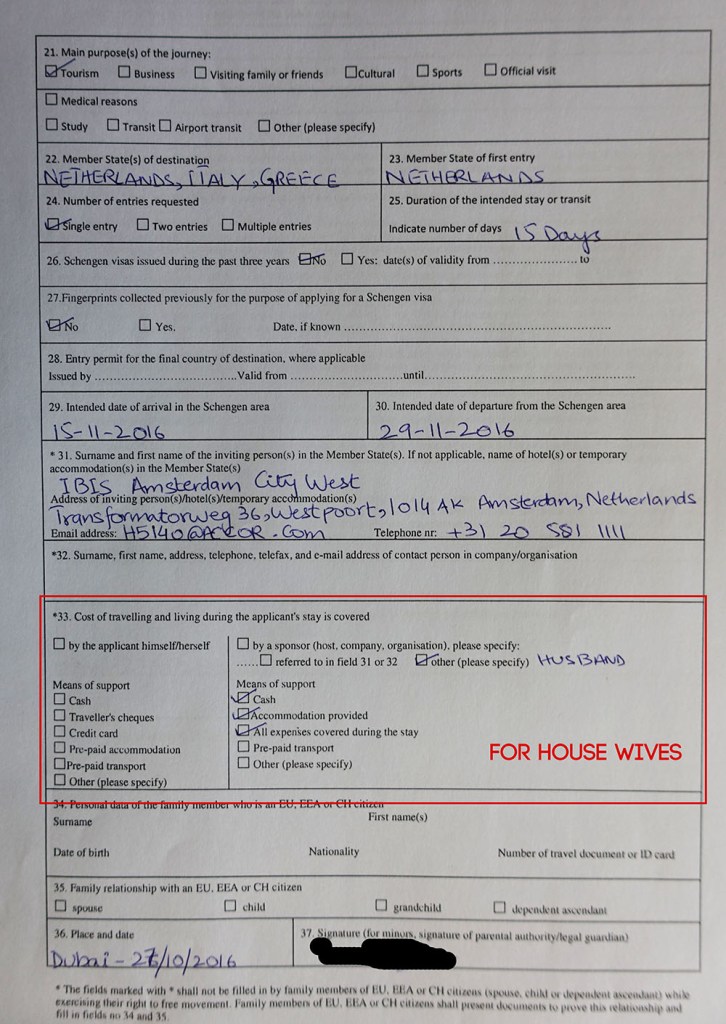 21. Main purpose(s) of the journey:
Tourism Business Visiting family or friends Cultural Sports Official visit
Medical reasons
Study Transit Airport transit Other (please specify)
22. Member State(s) of destination
NETHERLANDS, ITALY, GREECE
23. Member State of first entry
NETHERLANDS
24. Number of entries requested
Single entry Two entries Multiple entries
25. Duration of the intended stay or transit
Indicate number of days 15 Days
26. Schengen visas issued during the past three years No Yes: date(s) of validity from ...................... to
27.Fingerprints collected previously for the purpose of applying for a Schengen visa
No Yes. Date, if known ......................................................................
28. Entry permit for the final country of destination, where applicable
Issued by .....................................Valid from .............................until.....................................................
29. Intended date of arrival in the Schengen area
15-11-2016
30. Intended date of departure from the Schengen area
29-11-2016
* 31. Surname and first name of the inviting person(s) in the Member State(s). If not applicable, name of hotel(s) or temporary
accommodation(s) in the Member State(s)
IBIS Amsterdam City West
Address of inviting person(s)/hotel(s)/temporary accommodation(s)
Transformatorweg 36, Westpoort, 1014 AK Amsterdam, Netherlands
Email address: H5140@ACCOR.Com Telephone nr: +31 20 581 1111
*32. Surname, first name, address, telephone, telefax, and e-mail address of contact person in company/organisation
*33. Cost of travelling and living during the applicant's stay is covered
by the applicant himself/herself
Means of support
Cash
Traveller's cheques
Credit card
Pre-paid accommodation
Pre-paid transport
Other (please specify)
by a sponsor (host, company, organisation), please specify:
......referred to in field 31 or 32 other (please specify) HUSBAND
Means of support
Cash
Accommodation provided
All expenses covered during the stay
Pre-paid transport
Other (please specify)
FOR HOUSE WIVES
34. Personal data of the family member who is an EU, EEA or CH citizen
Surname First name(s)
Date of birth Nationality Number of travel document or ID card
35. Family relationship with an EU, EEA or CH citizen
spouse child grandchild dependent ascendant
36. Place and date
Dubai - 27/10/2016
37. Signature (for minors, signature of parental authority/legal guardian)
* The fields marked with * shall not be filled in by family members of EU, EEA or CH citizens (spouse, child or dependent ascendant) while
exercising their right to free movement. Family members of EU, EEA or CH citizens shall present documents to prove this relationship and
fill in fields no 34 and 35.